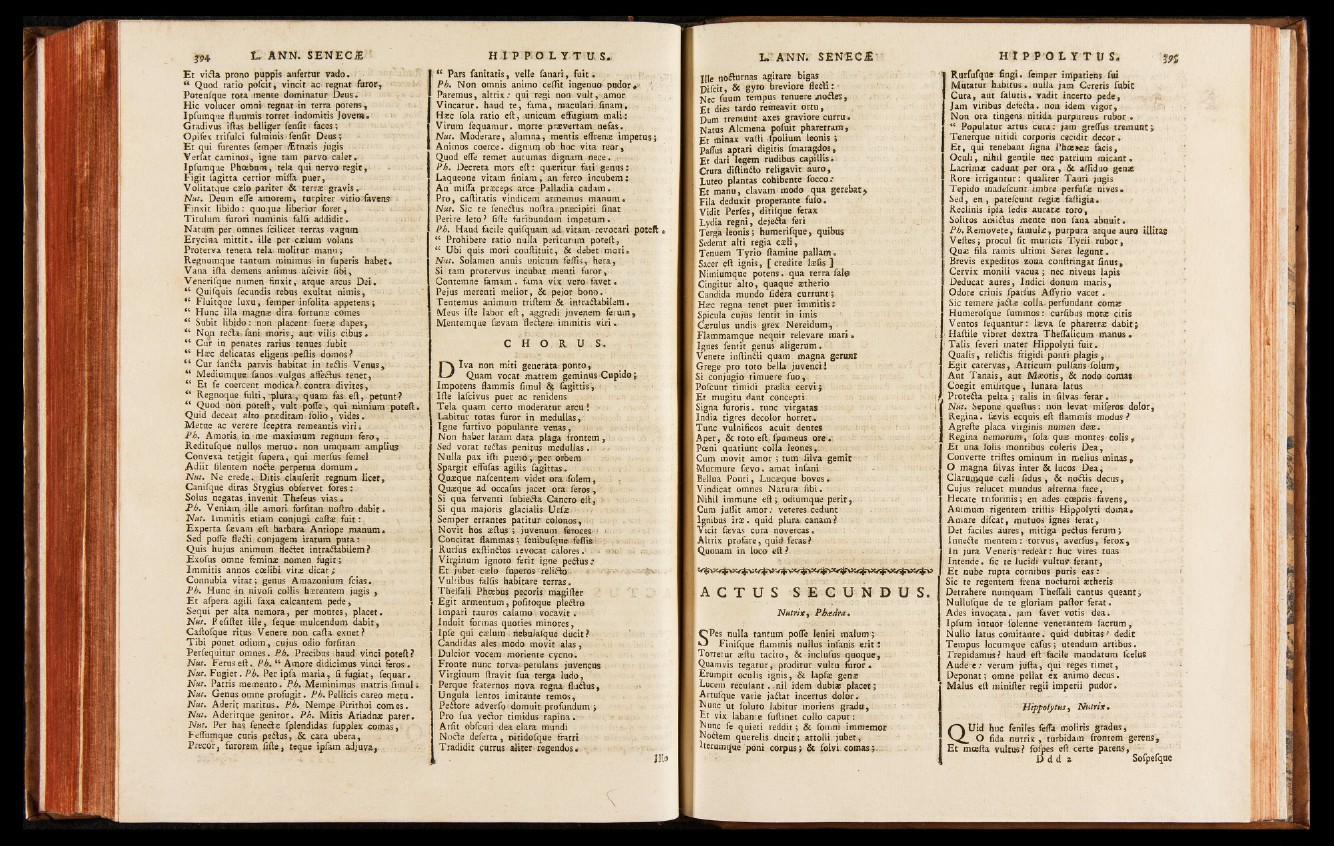 394 L. ANN. SENECÆ
Et victa prono puppis aufertur vado.
“ Quod ratio poſcit, vincit ac regnat furor,
Potenſque tota mente dominatur Deus.
Hic volucer omni regnat in terra potens,
Ipſumque flammis torret indomitis Jovem.
Gradivus iſtas belliger ſenſit faces;
Opifex triſulci fulminis ſenſit Deus;
Et qui furentes ſemper Ætnæis jugis
Verſat caminos, igne tam parvo calet.
Ipſumque Phœbum, tela qui nervo regit,
Figit ſagitta certior miſſa puer,
Volitatque cælo pariter & terræ gravis.
Nut. Deum eſſe amorem, turpiter vitio favens
Finxit libido: quoque liberior foret,
Titulum furori numinis falſi addidit.
Natum per omnes ſcilicet terras vagum
Erycina mittit. ille per cælum volans
Proterva tenera tela molitur manu;
Regnumque tantum minimus in ſuperis habet.
Vana iſta demens animus aſcivit ſibi,
Veneriſque numen finxit, atque arcus Dei.
“ Quiſquis ſecundis rebus exultat nimis,
“ Fluitque luxu, ſemper inſolita appetens;
“ Hunc illa magnæ dira fortunæ comes
“ Subit libido: non placent ſuetæ dapes,
“ Non tecta ſani moris, aut vilis cibus.
“ Cur in penates rarius tenues ſubit
“ Hæc delicatas eligens peſtis domos?
“ Cur ſancta parvis habitat in tectis Venus,
“ Mediumque ſanos vulgus affectus tenet,
“ Et ſe coercent modica? contra divites,
“ Regnoque fulti, plura, quam fas eſt, petunt?
“ Quod non poteſt, vult poſſe, qui nimium poteſt.
Quid deceat alto præditam ſolio, vides.
Metue ac verere ſceptra remeantis viri.
Ph. Amoris in me maximum regnum fero,
Redituſque nullos metuo. non umquam amplius
Convexa tetigit ſupera, qui merſus ſemel
Adiit ſilentem nocte perpetua domum.
Nut. Ne crede. Ditis clauſerit regnum licet,
Caniſque diras Stygius obſervet fores:
Solus negatas invenit Theſeus vias.
Ph. Veniam ille amori forſitan noſtro dabit.
Nut. Immitis etiam conjugi caſtæ fuit:
Experta ſævam eſt barbara Antiope manum.
Sed poſſe flecti conjugem iratum puta:
Quis hujus animum flectet intractabilem?
Exoſus omne feminæ nomen fugit;
Immitis annos cœlibi vitæ dicat;
Connubia vitat; genus Amazonium ſcias.
Ph. Hunc in nivoſi collis hærentem jugis,
Et aſpera agili ſaxa calcantem pede,
Sequi per alta nemora, per montes, placet.
Nut. Reſiſtet ille, ſeque mulcendum dabit,
Caſtoſque ritus Venere non caſta exuet?
Tibi ponet odium, cujus odio forſitan
Perſequitur omnes. Ph. Precibus haud vinci poteſt?
Nut. Ferus eſt. Ph. “ Amore didicimus vinci feros.
Nut. Fugiet. Ph. Per ipſa maria, ſi fugiat, ſequar.
Nut. Patris memento. Ph. Meminimus matris ſimul.
Nut. Genus omne profugit. Ph. Pellicis careo metu.
Nut. Aderit maritus. Ph. Nempe Pirithoi comes.
Nut. Aderitque genitor. Ph. Mitis Ariadnæ pater.
Nut. Per has ſenectæ ſplendidas ſupplex comas,
Feſſumque curis pectus, & cara ubera,
Precor, furorem ſiſte, teque ipſam adjuva,
HIPPOLYTUS.
“ Pars ſanitatis, velle ſanari, fuit.
Ph. Non omnis animo ceſſit ingenuo pudor.
Paremus, altrix: qui regi non vult, amor
Vincatur. haud te, fama, maculari ſinam.
Hæc ſola ratio eſt, unicum effugium mali:
Virum ſequamur. morte prævertam nefas.
Nut. Moderare, alumna, mentis effrenæ impetus;
Animos coerce. dignam ob hoc vita rear,
Quod eſſe temet autumas dignam nece.
Ph. Decreta mors eſt: quæritur fati genus:
Laqueone vitam finiam, an ferro incubem:
An miſſa præceps arce Palladia cadam.
Pro, caſtitatis vindicem armemus manum.
Nut. Sic te ſenectus noſtra præcipiti ſinat
Perire leto? ſiſte furibundum impetum.
Ph. Haud facile quiſquam ad vitam revocari poteſt.
“ Prohibere ratio nulla periturum poteſt,
“ Ubi quis mori conſtituit, & debet mori.
Nut. Solamen annis unicum feſſis, hera,
Si tam protervus incubat menti furor,
Contemne famam. fama vix vero favet.
Pejus merenti melior, & pejor bono.
Tentemus animum triſtem & intractabilem.
Meus iſte labor eſt, aggredi juvenem ferum,
Mentemque ſævam flectere immitis viri.
CHORUS.
DIva non miti generata ponto,
Quam vocat matrem geminus Cupido;
Impotens flammis ſimul & ſagittis,
Iſte laſcivus puer ac renidens
Tela quam certo moderatur arcu!
Labitur totas furor in medullas,
Igne furtivo populante venas,
Non habet latam data plaga frontem,
Sed vorat tectas penitus medullas.
Nulla pax iſti puero, per orbem
Spargit effuſas agilis ſagittas.
Quæque naſcentem videt ora ſolem,
Quæque ad occaſus jacet ora ſeros,
Si qua ferventi ſubjecta Cancro eſt,
Si qua majoris glacialis Urſæ
Semper errantes patitur colonos,
Novit hos æſtus; juvenum feroces
Concitat flammas; ſenibuſque feſſis
Rurſus exſtinctos revocat calores.
Virginum ignoto ferit igne pectus:
Et jubet cælo ſuperos relicto
Vultibus falſis habitare terras.
Theſſali Phœbus pecoris magiſter
Egit armentum, poſitoque plectro
Impari tauros calamo vocavit.
Induit formas quoties minores,
Ipſe qui cælum nebulaſque ducit?
Candidas ales modo movit alas,
Dulcior vocem moriente cycno.
Fronte nunc torva petulans juvencus
Virginum ſtravit ſua terga ludo,
Perque fraternos nova regna fluctus,
Ungula lentos imitante remos,
Pectore adverſo domuit profundum;
Pro ſua vector timidus rapina.
Arſit obſcuri dea clara mundi
Nocte deſerta, nitidoſque fratri
Tradidit currus aliter regendos.
Ille
L. ANN. SENECÆ
Ille nocturnas agitare bigas
Diſcit, & gyro breviore flecti:
Nec ſuum tempus tenuere noctes,
Et dies tardo remeavit ortu,
Dum tremunt axes graviore curru.
Natus Alcmena poſuit pharetram,
Et minax vaſti ſpolium leonis;
Paſſus aptari digitis ſmaragdos,
Et dari legem rudibus capillis.
Crura diſtincto religavit auro,
Luteo plantas cohibente ſocco:
Et manu, clavam modo qua gerebat,
Fila deduxit properante fuſo.
Vidit Perſes, ditiſque ferax
Lydia regni, dejecta feri
Terga leonis; humeriſque, quibus
Sederat alti regia cæli,
Tenuem Tyrio ſtamine pallam.
Sacer eſt ignis, [ credite læſis ]
Nimiumque potens. qua terra ſalo
Cingitur alto, quaque ætherio
Candida mundo ſidera currunt;
Hæc regna tenet puer immitis:
Spicula cujus ſentit in imis
Cærulus undis grex Nereidum,
Flammamque nequit relevare mari.
Ignes ſentit genus aligerum.
Venere inſtincti quam magna gerunt
Grege pro toto bella juvenci!
Si conjugio timuere ſuo,
Poſcunt timidi prælia cervi;
Et mugitu dant concepti
Signa furoris. tunc virgatas
India tigres decolor horret.
Tunc vulnificos acuit dentes
Aper, & toto eſt ſpumeus ore.
Pœni quatiunt colla leones,
Cum movit amor; tum ſilva gemit
Murmure ſævo. amat inſani
Bellua Ponti, Lucæque boves.
Vindicat omnes Natura ſibi.
Nihil immune eſt; odiumque perit,
Cum juſſit amor: veteres cedunt
Ignibus iræ. quid plura canam?
Vicit ſævas cura novercas.
Altrix profare, quid feras?
Quonam in loco eſt?
ACTUS SECUNDUS.
Nutrix, Phædra.
SPes nulla tantum poſſe leniri malum;
Finiſque flammis nullus inſanis erit:
Torretur æſtu tacito, & incluſus quoque,
Quamvis tegatur, proditur vultu furor.
Erumpit oculis ignis, & lapſæ genæ
Lucem recuſant. nil idem dubiæ placet;
Artuſque varie jactat incertus dolor.
Nunc ut ſoluto labitur moriens gradu,
Et vix labante ſuſtinet collo caput:
Nunc ſe quieti reddit; & ſomni immemor
Noctem querelis ducit; attolli jubet,
Iterumque poni corpus; & ſolvi comas;
HIPPOLYTUS. 395
Rurſuſque fingi. ſemper impatiens ſui
Mutatur habitus. nulla jam Cereris ſubit
Cura, aut ſalutis. vadit incerto pede,
Jam viribus defecta. non idem vigor,
Non ora tingens nitida purpureus rubor.
“ Populatur artus cura: jam greſſus tremunt;
Tenerque nitidi corporis cecidit decor.
Et, qui tenebant ſigna Phœbeæ facis,
Oculi, nihil gentile nec patrium micant.
Lacrimæ cadunt per ora, & aſſiduo genæ
Rore irrigantur: qualiter Tauri jugis
Tepido madeſcunt imbre perfuſæ nives.
Sed, en, pateſcunt regiæ faſtigia.
Reclinis ipſa ſedis auratæ toro,
Solitos amictus mente non ſana abnuit.
Ph. Removete, famulæ, purpura atque auro illitas
Veſtes; procul ſit muricis Tyrii rubor,
Quæ fila ramis ultimi Seres legunt.
Brevis expeditos zona conſtringat ſinus,
Cervix monili vacua; nec niveus lapis
Deducat aures, Indici donum maris,
Odore crinis ſparſus Aſſyrio vacet.
Sic temere jactæ colla perfundant comæ
Humeroſque ſummos: curſibus motæ citis
Ventos ſequantur: læva ſe pharetræ dabit;
Haſtile vibret dextra Theſſalicum manus.
Talis ſeveri mater Hippolyti fuit.
Qualis, relictis frigidi ponti plagis,
Egit catervas, Atticum pulſans ſolum,
Aut Tanais, aut Mæotis, & nodo comas
Coegit emiſitque, lunata latus
Protecta pelta; talis in ſilvas ferar.
Nut. Sepone queſtus: non levat miſeros dolor,
Regina. ſævis ecquis eſt flammis modus?
Agreſte placa virginis numen deæ.
Regina nemorum, ſola quæ montes colis,
Et una ſolis montibus coleris Dea,
Converte triſtes ominum in melius minas,
O magna ſilvas inter & lucos Dea,
Clarumque cæli ſidus, & noctis decus,
Cujus relucet mundus alterna face,
Hecate triformis; en ades cœptis favens,
Animum rigentem triſtis Hippolyti doma.
Amare diſcat, mutuos ignes ferat,
Det faciles aures, mitiga pectus ferum;
Innecte mentem: torvus, averſus, ferox,
In jura Veneris redeat: huc vires tuas
Intende. ſic te lucidi vultus ferant,
Et nube rupta cornibus puris eas:
Sic te regentem fræna nocturni ætheris
Detrahere numquam Theſſali cantus queant;
Nulluſque de te gloriam paſtor ferat.
Ades invocata. jam favet votis dea.
Ipſum intuor ſolenne venerantem ſacrum,
Nullo latus comitante. quid dubitas? dedit
Tempus locumque caſus; utendum artibus.
Trepidamus? haud eſt facile mandatum ſcelus
Audere: verum juſta, qui reges timet,
Deponat; omne pellat ex animo decus.
Malus eſt miniſter regii imperii pudor.
Hippolytus, Nutrix.
QUid huc ſeniles feſſa moliris gradus,
O fida nutrix, turbidam frontem gerens,
Et mœſta vultus? ſoſpes eſt certe parens,
D d d 2 Soſpeſque